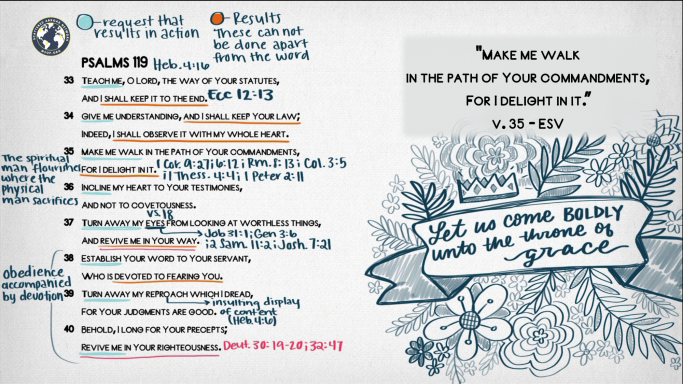 request that
results in action
Results
These can not
be done apart
from the word
PSALMS 119 Heb. 4:16
33 TEACH ME, O LORD, THE WAY OF YOUR STATUTES,
AND I SHALL KEEP IT TO THE END. Ecc 12:13
34 GIVE ME UNDERSTANDING, AND I SHALL KEEP YOUR LAW;
INDEED, I SHALL OBSERVE IT WITH MY WHOLE HEART.
35 MAKE ME WALK IN THE PATH OF YOUR COMMANDMENTS,
FOR I DELIGHT IN IT. 1 Cor. 9:27; 6:12; Rm. 8:13; Col. 3:5
; 1 Thess. 4:4; 1 Peter 2:11
The spiritual
man flourishes
where the
physical
man sacrifices
36 INCLINE MY HEART TO YOUR TESTIMONIES,
AND NOT TO COVETOUSNESS.
vs. 18
37 TURN AWAY MY EYES FROM LOOKING AT WORTHLESS THINGS,
Job 31:1; Gen 3:6
AND REVIVE ME IN YOUR WAY. ; 2 Sam. 11:2; Josh. 7:21
38 ESTABLISH YOUR WORD TO YOUR SERVANT,
WHO IS DEVOTED TO FEARING YOU.
Obedience
accompanied
by devotion
39 TURN AWAY MY REPROACH WHICH I DREAD,
insulting display
FOR YOUR JUDGMENTS ARE GOOD. of content
(Heb. 4:6)
40 BEHOLD, I LONG FOR YOUR PRECEPTS;
REVIVE ME IN YOUR RIGHTEOUSNESS. Deut. 30:19-20; 32:47
"MAKE ME WALK
IN THE PATH OF YOUR COMMANDMENTS,
FOR I DELIGHT IN IT."
V. 35 - ESV
Let us come BOLDLY
unto the throne of
grace